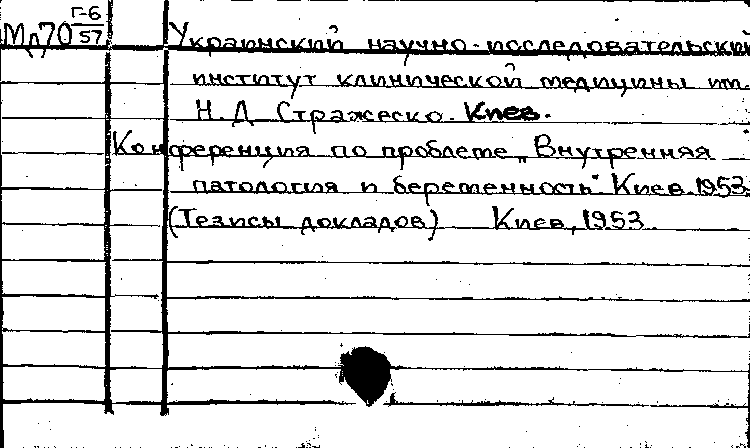 Мд70 Г-6/57 Украинский научно-исследовательский
институт клинической медицины им.
Н. Д. Стражеско. Киев.
Конференция по проблеме „Внутренняя
патология и беременность" Киев. 1953
(Тезисы докладов) Киев, 1953.